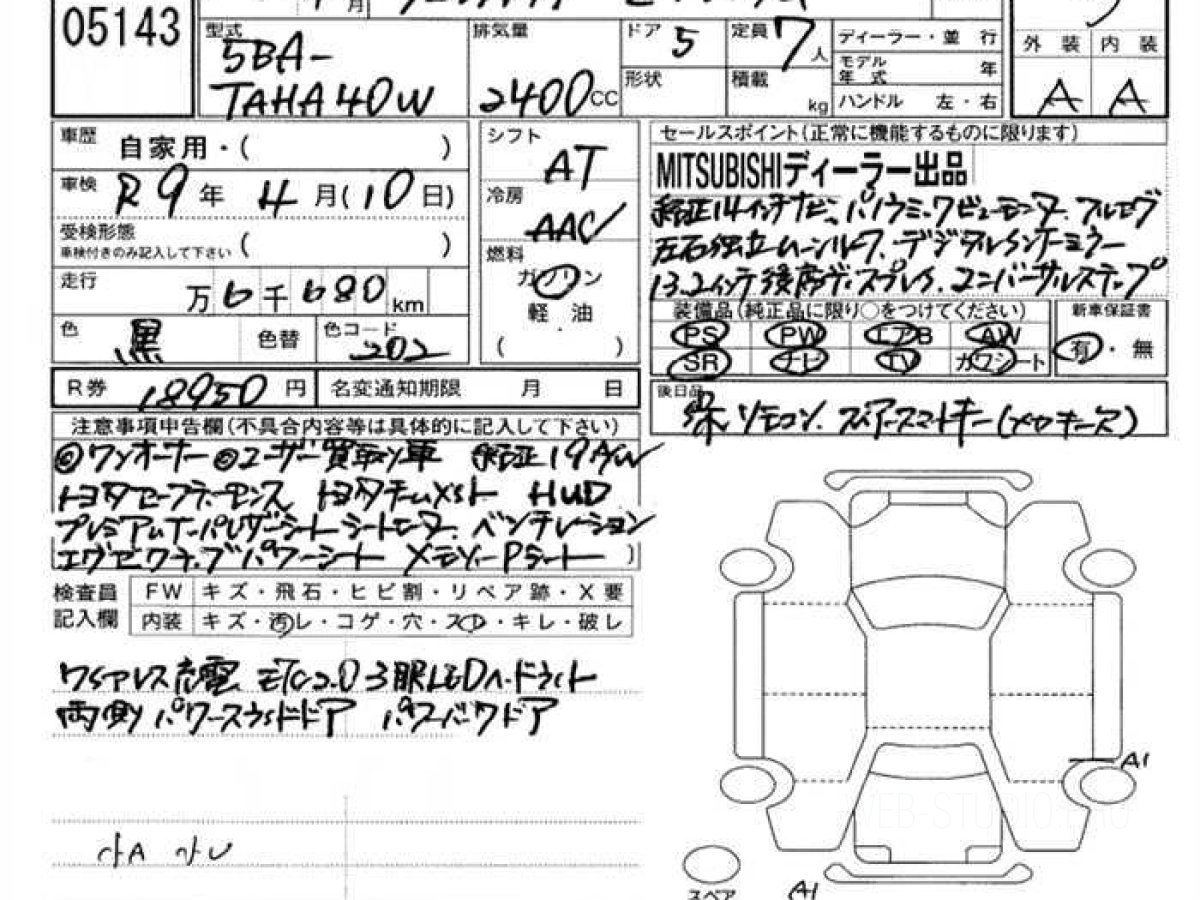 05143
型式 5BA-
TAHA40W
排気量 2400 CC
ドア 5
定員 7 人
ディーラー・並 行
モデル年式 年
形状
積載 kg
ハンドル 左・右
外 装 内 装
A A
車歴 自家用・( )
シフト AT
セールスポイント(正常に機能するものに限ります)
車検 R9 年 4 月(10 日)
冷房 AAC
MITSUBISHIディーラー出品
純正14インチナビ、パノラミックビューモニター フルセグ
受検形態
車検付きのみ記入して下さい ( )
左右独立ムーンルーフ、デジタルインナーミラー
燃料 ガソリン
軽・油
( )
13.2インチ後席ディスプレイ、ユニバーサルステップ
走行 万 6 千 680 km
装備品(純正品に限り○をつけてください)
PS PW エアB AW
SR ナビ TV カワシート
新車保証書
有・無
色 黒 色替 色コード 202
R券 18950 円
名変通知期限 月 日
後日品 保 リモコン スペアスマートキー(メカキース)
注意事項申告欄(不具合内容等は具体的に記入して下さい)
◎ワンオーナー ◎ユーザー買取り車 純正19A/W
トヨタセーフティーセンス トヨタチームメイト HUD
プレミアムナッパレザーシート シートヒーター ベンチレーション
エグゼクティブパワーシート メモリーPシート )
検査員記入欄
FW キズ・飛石・ヒビ割・リペア跡・X要
内装 キズ・汚レ・コゲ・穴・スレ・キレ・破レ
ワイヤレス充電 ETC2.0 3眼LEDヘッドライト
両側パワースライドドア パワーバックドア
A1
スペア
A1
WEB-STUDIO.PRO